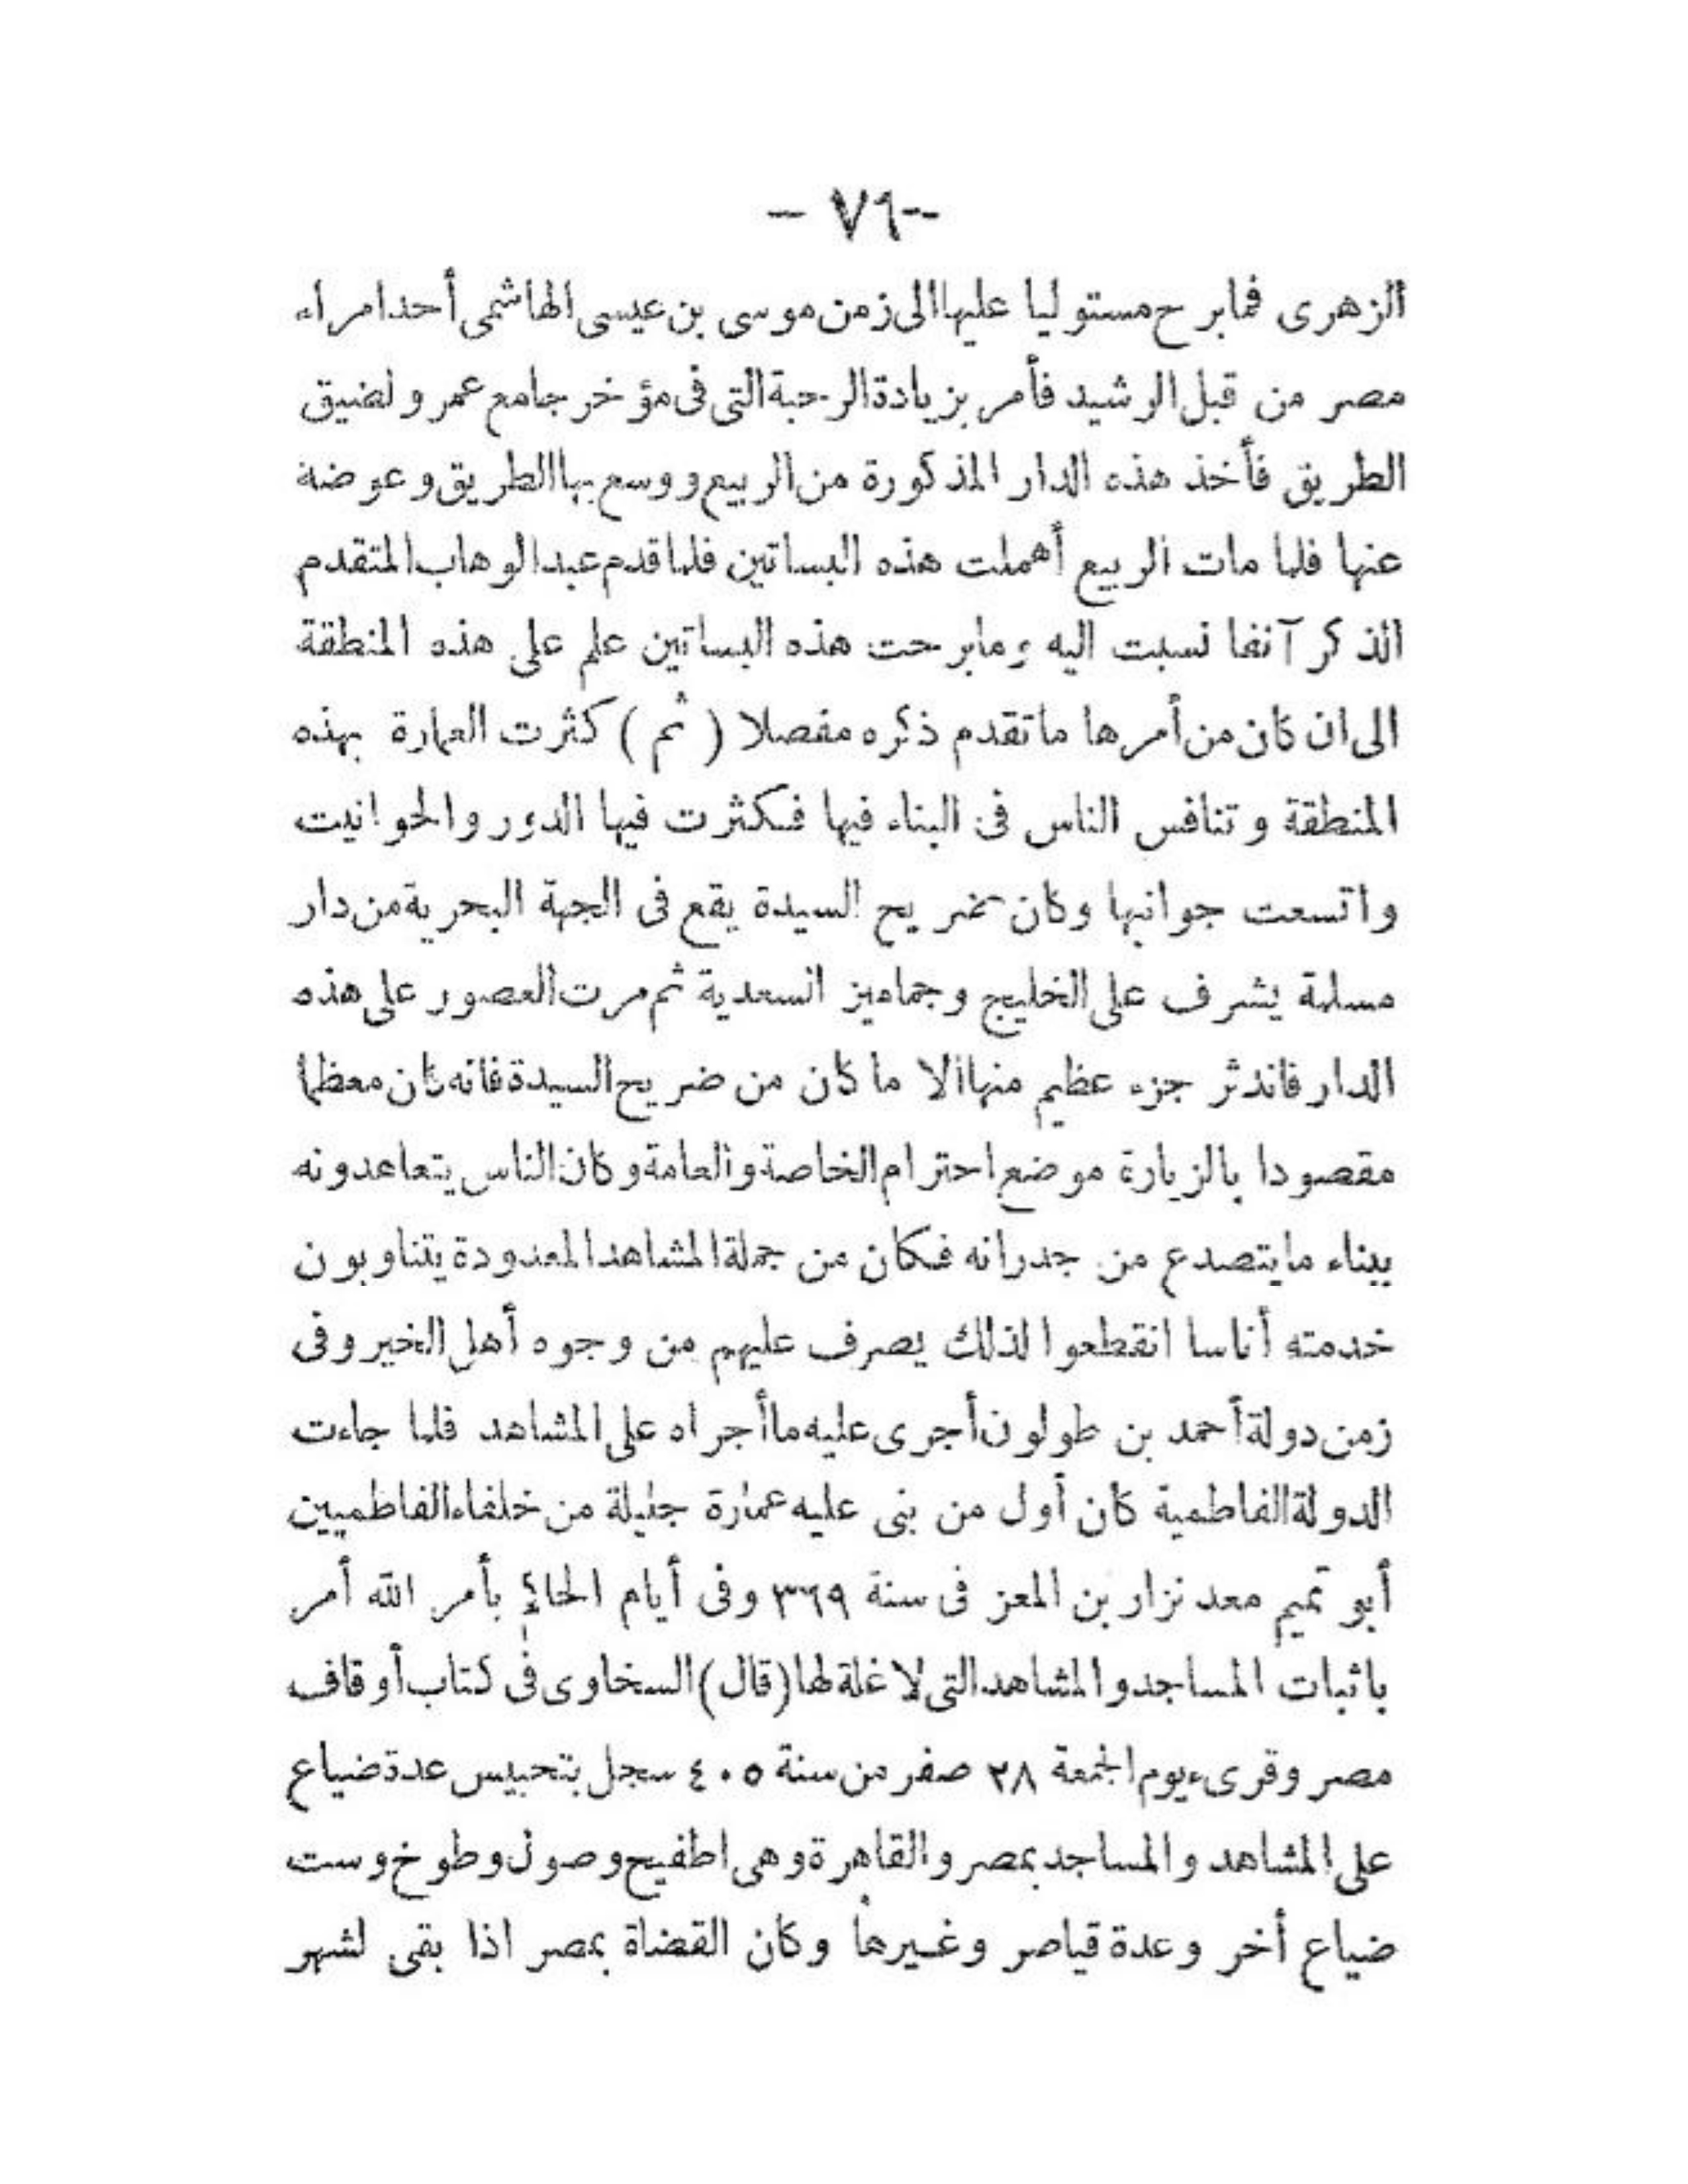 -- ٧٦ -
الزهرى فمابرح مستوليا عليها الى زمن موسى بن عيسى الهاشمى أحد امراء
مصر من قبل الرشيد فأمر بزيادة الرحبة التى فى مؤخر جامع عمرو لضيق
الطريق فأخذ هذه الدار المذكورة من الربيع ووسع بها الطريق وعوضه
عنها فلما مات الربيع أهملت هذه البساتين فلما قدم عبد الوهاب المتقدم
الذكر آنفا نسبت اليه ومابرحت هذه البساتين علم على هذه المنطقة
الى ان كان من أمرها ماتقدم ذكره مفصلا ( ثم ) كثرت العمارة بهذه
المنطقة وتنافس الناس فى البناء فيها فكثرت فيها الدور والحوانيت
واتسعت جوانبها وكان ضريح السيدة يقع فى الجهة البحرية من دار
مسلمة يشرف على الخليج وجماميز السعدية ثم مرت العصور على هذه
الدار فاندثر جزء عظيم منها الا ما كان من ضريح السيدة فانه كان معظما
مقصودا بالزيارة موضع احترام الخاصة والعامة وكان الناس يتعاعدونه
ببناء مايتصدع من جدرانه فكان من جملة المشاهد المعدودة يتناوبون
خدمته أناسا انقطعوا لذلك يصرف عليهم من وجوه أهل الخير وفى
زمن دولة أحمد بن طولون أجرى عليه ماأجراه على المشاهد فلما جاءت
الدولة الفاطمية كان أول من بنى عليه عمارة جليلة من خلفاء الفاطميين
أبو تميم معد نزار بن المعز فى سنة ٣٦٩ وفى أيام الحاكم بأمر الله أمر
باثبات المساجد والمشاهد التى لا غلة لها (قال) السخاوى فى كتاب أوقاف
مصر وقرىء يوم الجمعة ٢٨ صفر من سنة ٤٠٥ سجل بتحبيس عدة ضياع
على المشاهد والمساجد بمصر والقاهرة وهى اطفيح وصول وطوخ وست
ضياع أخر وعدة قياصر وغيرها وكان القضاة بمصر اذا بقى لشهر